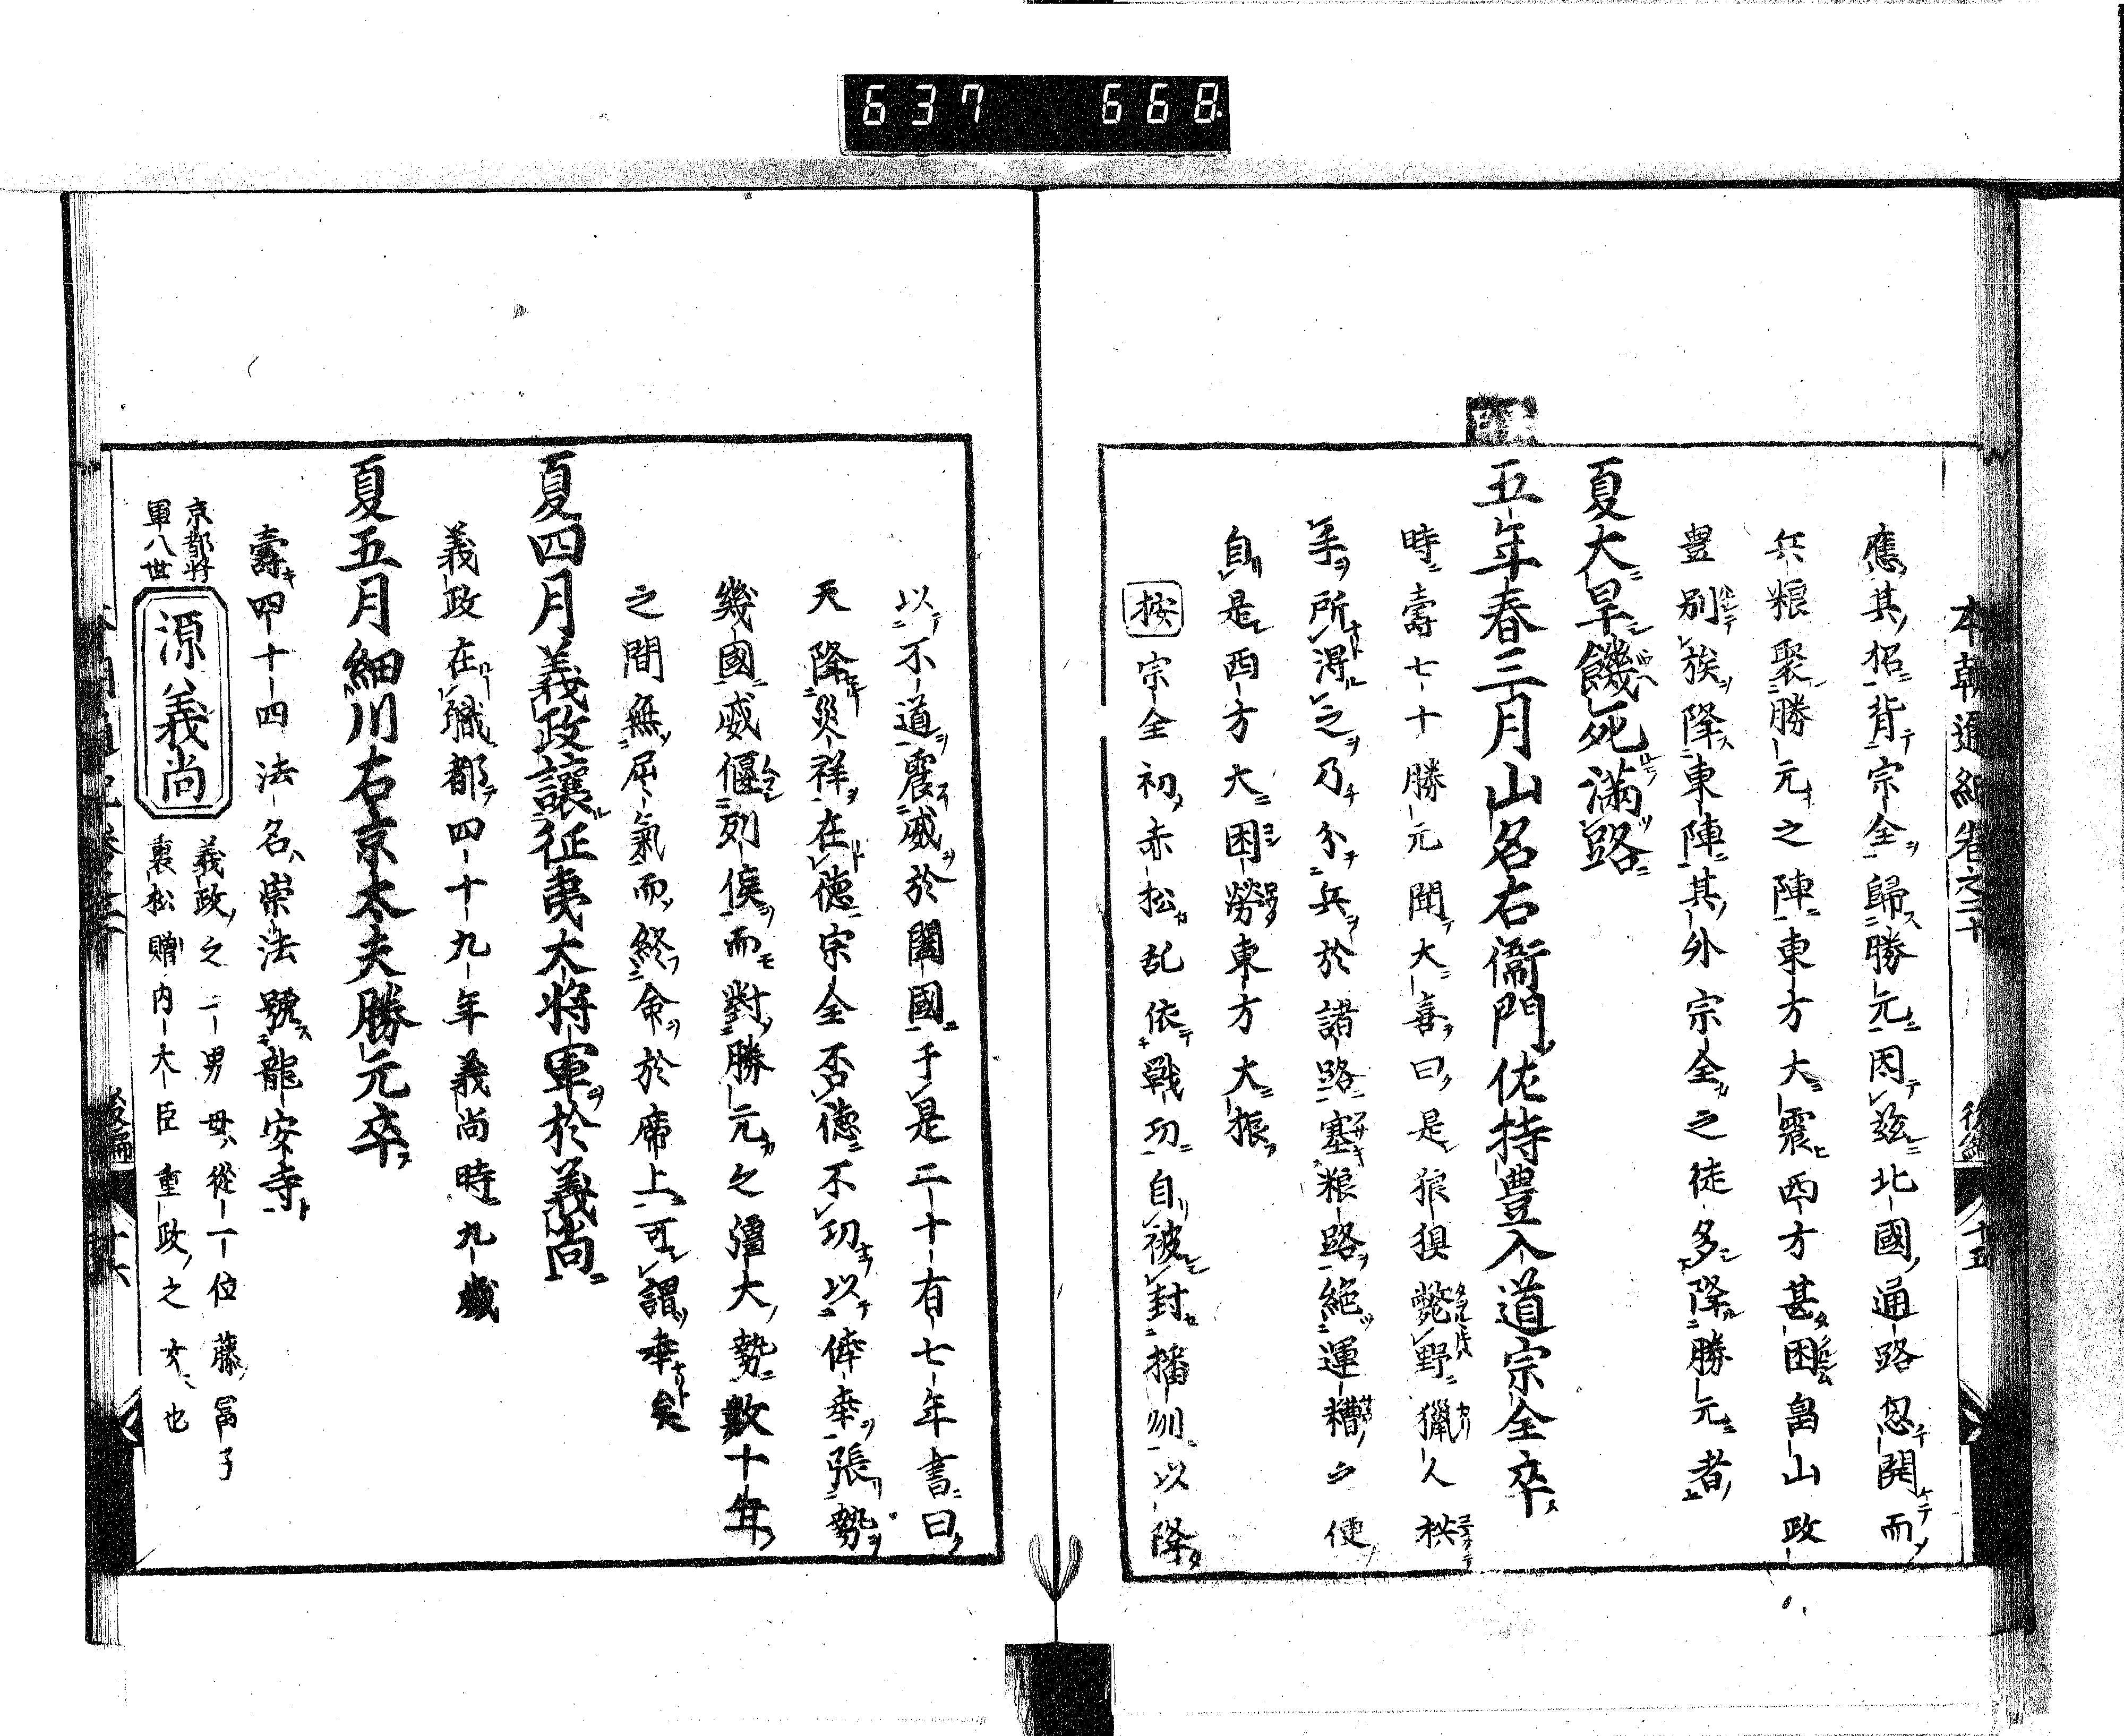 637 668
本朝通紀卷之二十 後編 十五
應其招背宗全歸勝元因茲北國通路忽開而
兵粮聚勝元之陣東方大震西方甚困畠山政
豊別族降東陣其外宗全之徒多降勝元者
夏大旱饑死滿路
五年春三月山名右衞門佐持豊入道宗全卒
時壽七十勝元聞大喜曰是狼狽斃野獵人
手所得之乃分兵於諸路塞粮路絕運糟之便
自是西方大困勞東方大振
按宗全初赤松乱依戰功自被封播州以降
以不道震威於闔國于是二十有七年書曰
天降災祥在德宗全否德不功以倖幸張勢
幾國威偃列侯而對勝元之彊大勢數十年
之間無屈氣而終命於席上可謂幸矣
夏四月義政讓征夷大將軍於義尚
義政在職都四十九年義尚時九歲
夏五月細川右京太夫勝元卒
壽四十四法名崇法號龍安寺
京都將軍八世
源義尚
義政之一男母從一位藤冨子
裏松贈内大臣重政之女也